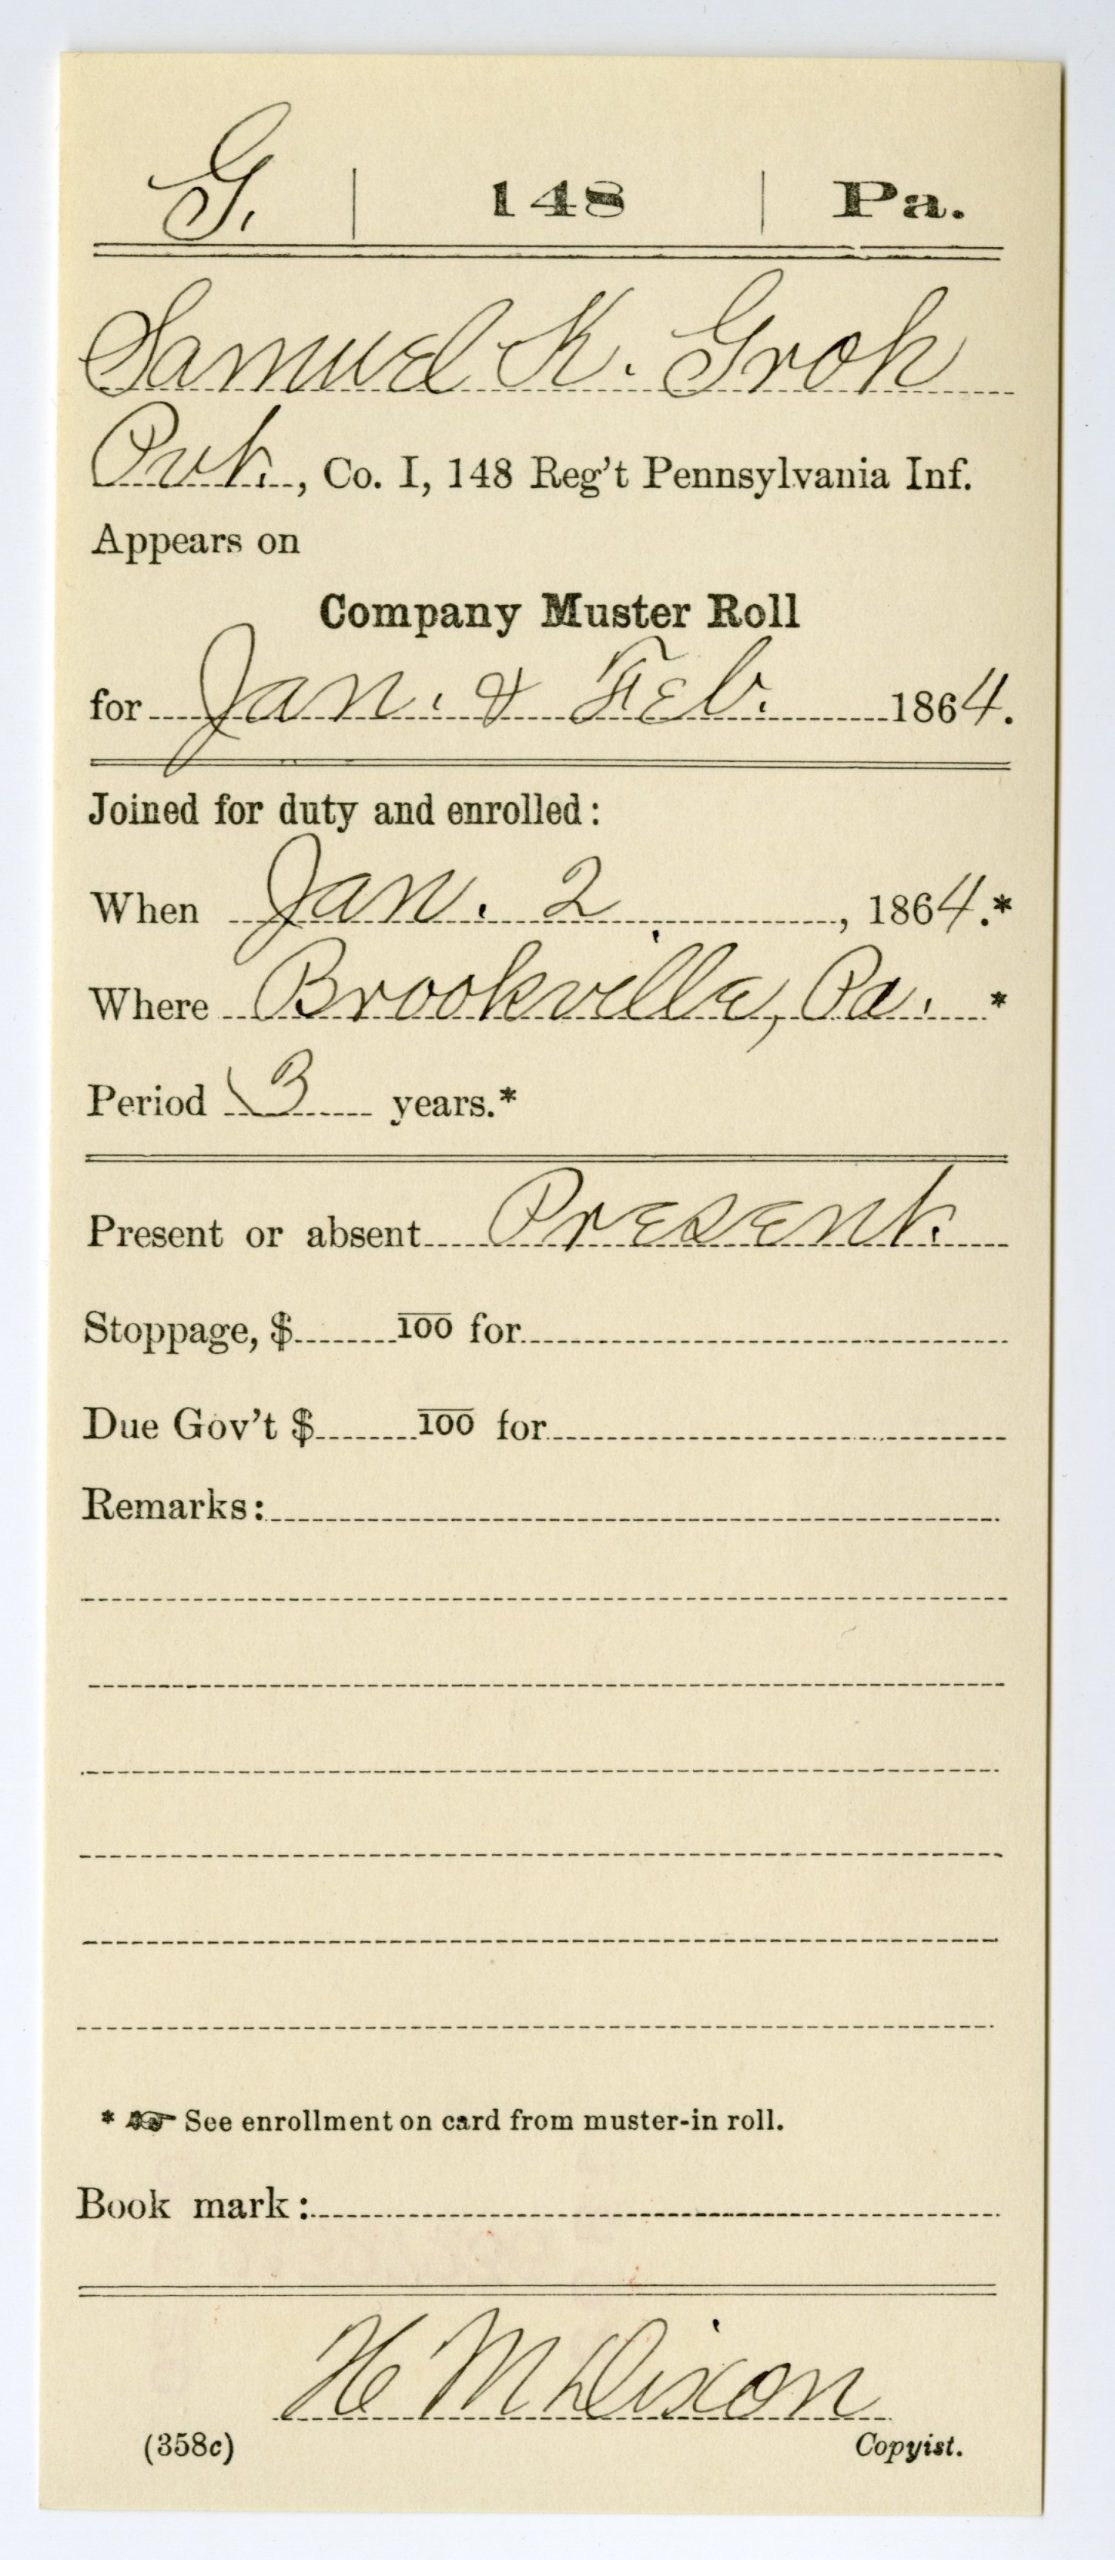 G. | 148 | Pa.
Samuel K. Groh
Pvt., Co. I, 148 Reg't Pennsylvania Inf.
Appears on
Company Muster Roll
for Jan. & Feb. 1864.
Joined for duty and enrolled:
When Jan. 2, 1864.*
Where Brookville, Pa. *
Period 3 years.*
Present or absent Present.
Stoppage, $ 100 for
Due Gov't $ 100 for
Remarks:
* ☞ See enrollment on card from muster-in roll.
Book mark:
H M Dixon
(358c) Copyist.